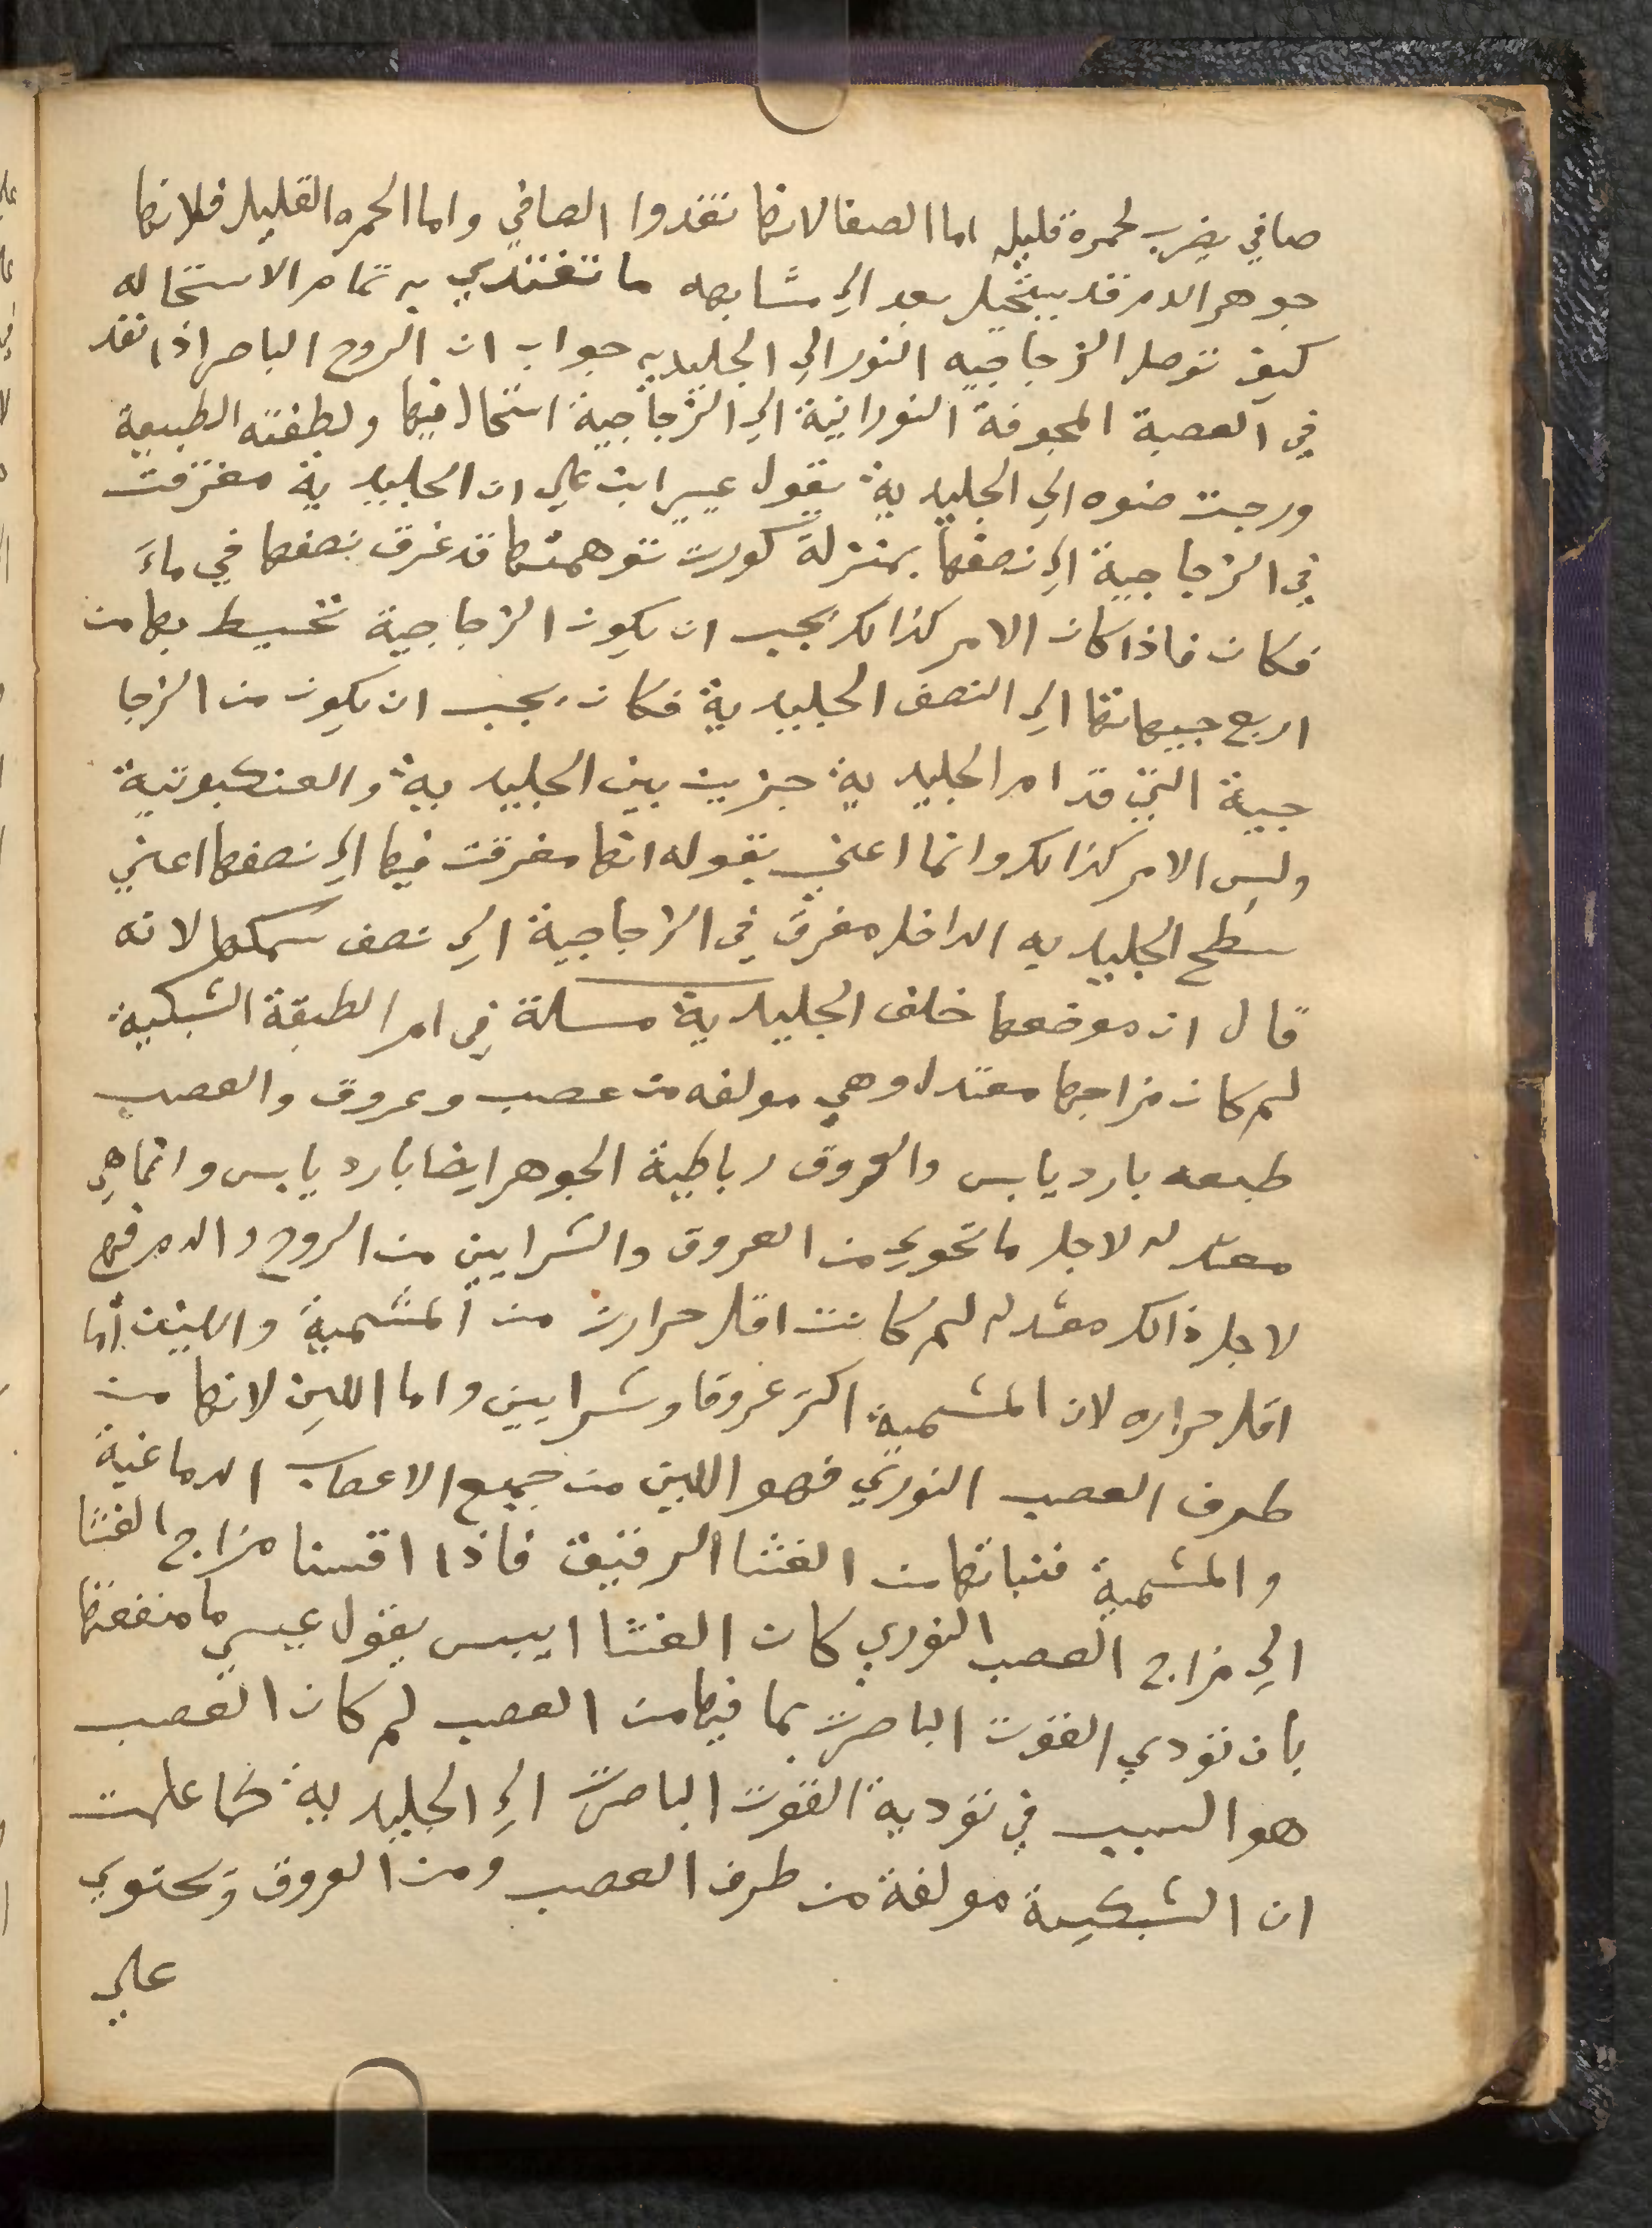 صافي يضرب لحمرة قليله اما الصفا لانها تغدوا الصافي واما الحمره القليل فلانها
جوهر الدم قد يبتخيل بعد الي مشابهه ما تغتدي به تمام الاستحاله
كيف توصل الزجاجيه النور الي الجليديه جواب ان الروح الباصر اذا نفد
في العصبة المجوفة النورانية الي الزجاجية استحال فيها ولطفته الطبيعة
ورجت ضوه الي الجليدية يقول عيسي ابن علي ان الجليدية مغرقت
في الزجاجية الي نصفها بمنزلة كورت توهمتها قد غرق نصفها في ماء
فكان فاذا كان الامر كذالك يجب ان يكون الزجاجية تحيط بها من
اربع جيهاتها الي النصف الجليدية فكان يجب ان يكون من الزجا
جية التي قدام الجليدية جزين بين الجليدية والعنكبوتية
وليس الامر كذالك وانما اعني بقوله انها مغرقت فيها الي نصفها اعني
سطح الجليديه الداخل مغرق في الزجاجية الي نصف سمكها لانه
قال ان موضعها خلف الجليدية مسلة في امر الطبقة الشبكية
لم كان مزاجها معتدل وهي مولفه من عصب وعروق والعصب
طبعه بارد يابس والعروق رباطية الجوهر ايضا بارد يابس وانما هي
معتدله لاجل ما تحوي من العروق والشرايين من الروح والدم فهي
لاجل ذالك معتدله لم كانت اقل حرارت من المشمية والين اما
اقل حراره لان المشمية اكثر عروقا وشرايين واما اللين لانها من
طرف العصب النوري فهو اللين من جميع الاعصاب الدماغية
والمشمية فنباتها من الغشا الرقيق فاذا اقسنا مزاج الغشا
الي مزاج العصب النوري كان الغشا ايبس يقول عيسي ما منفعتها
بان تودي القوت الباصرت بما فيها من العصب لم كان العصب
هو السبب في تودية القوت الباصرت الي الجليدية كما علمت
ان الشبكية مولفة من طرف العصب ومن العروق وتحتوي
علي